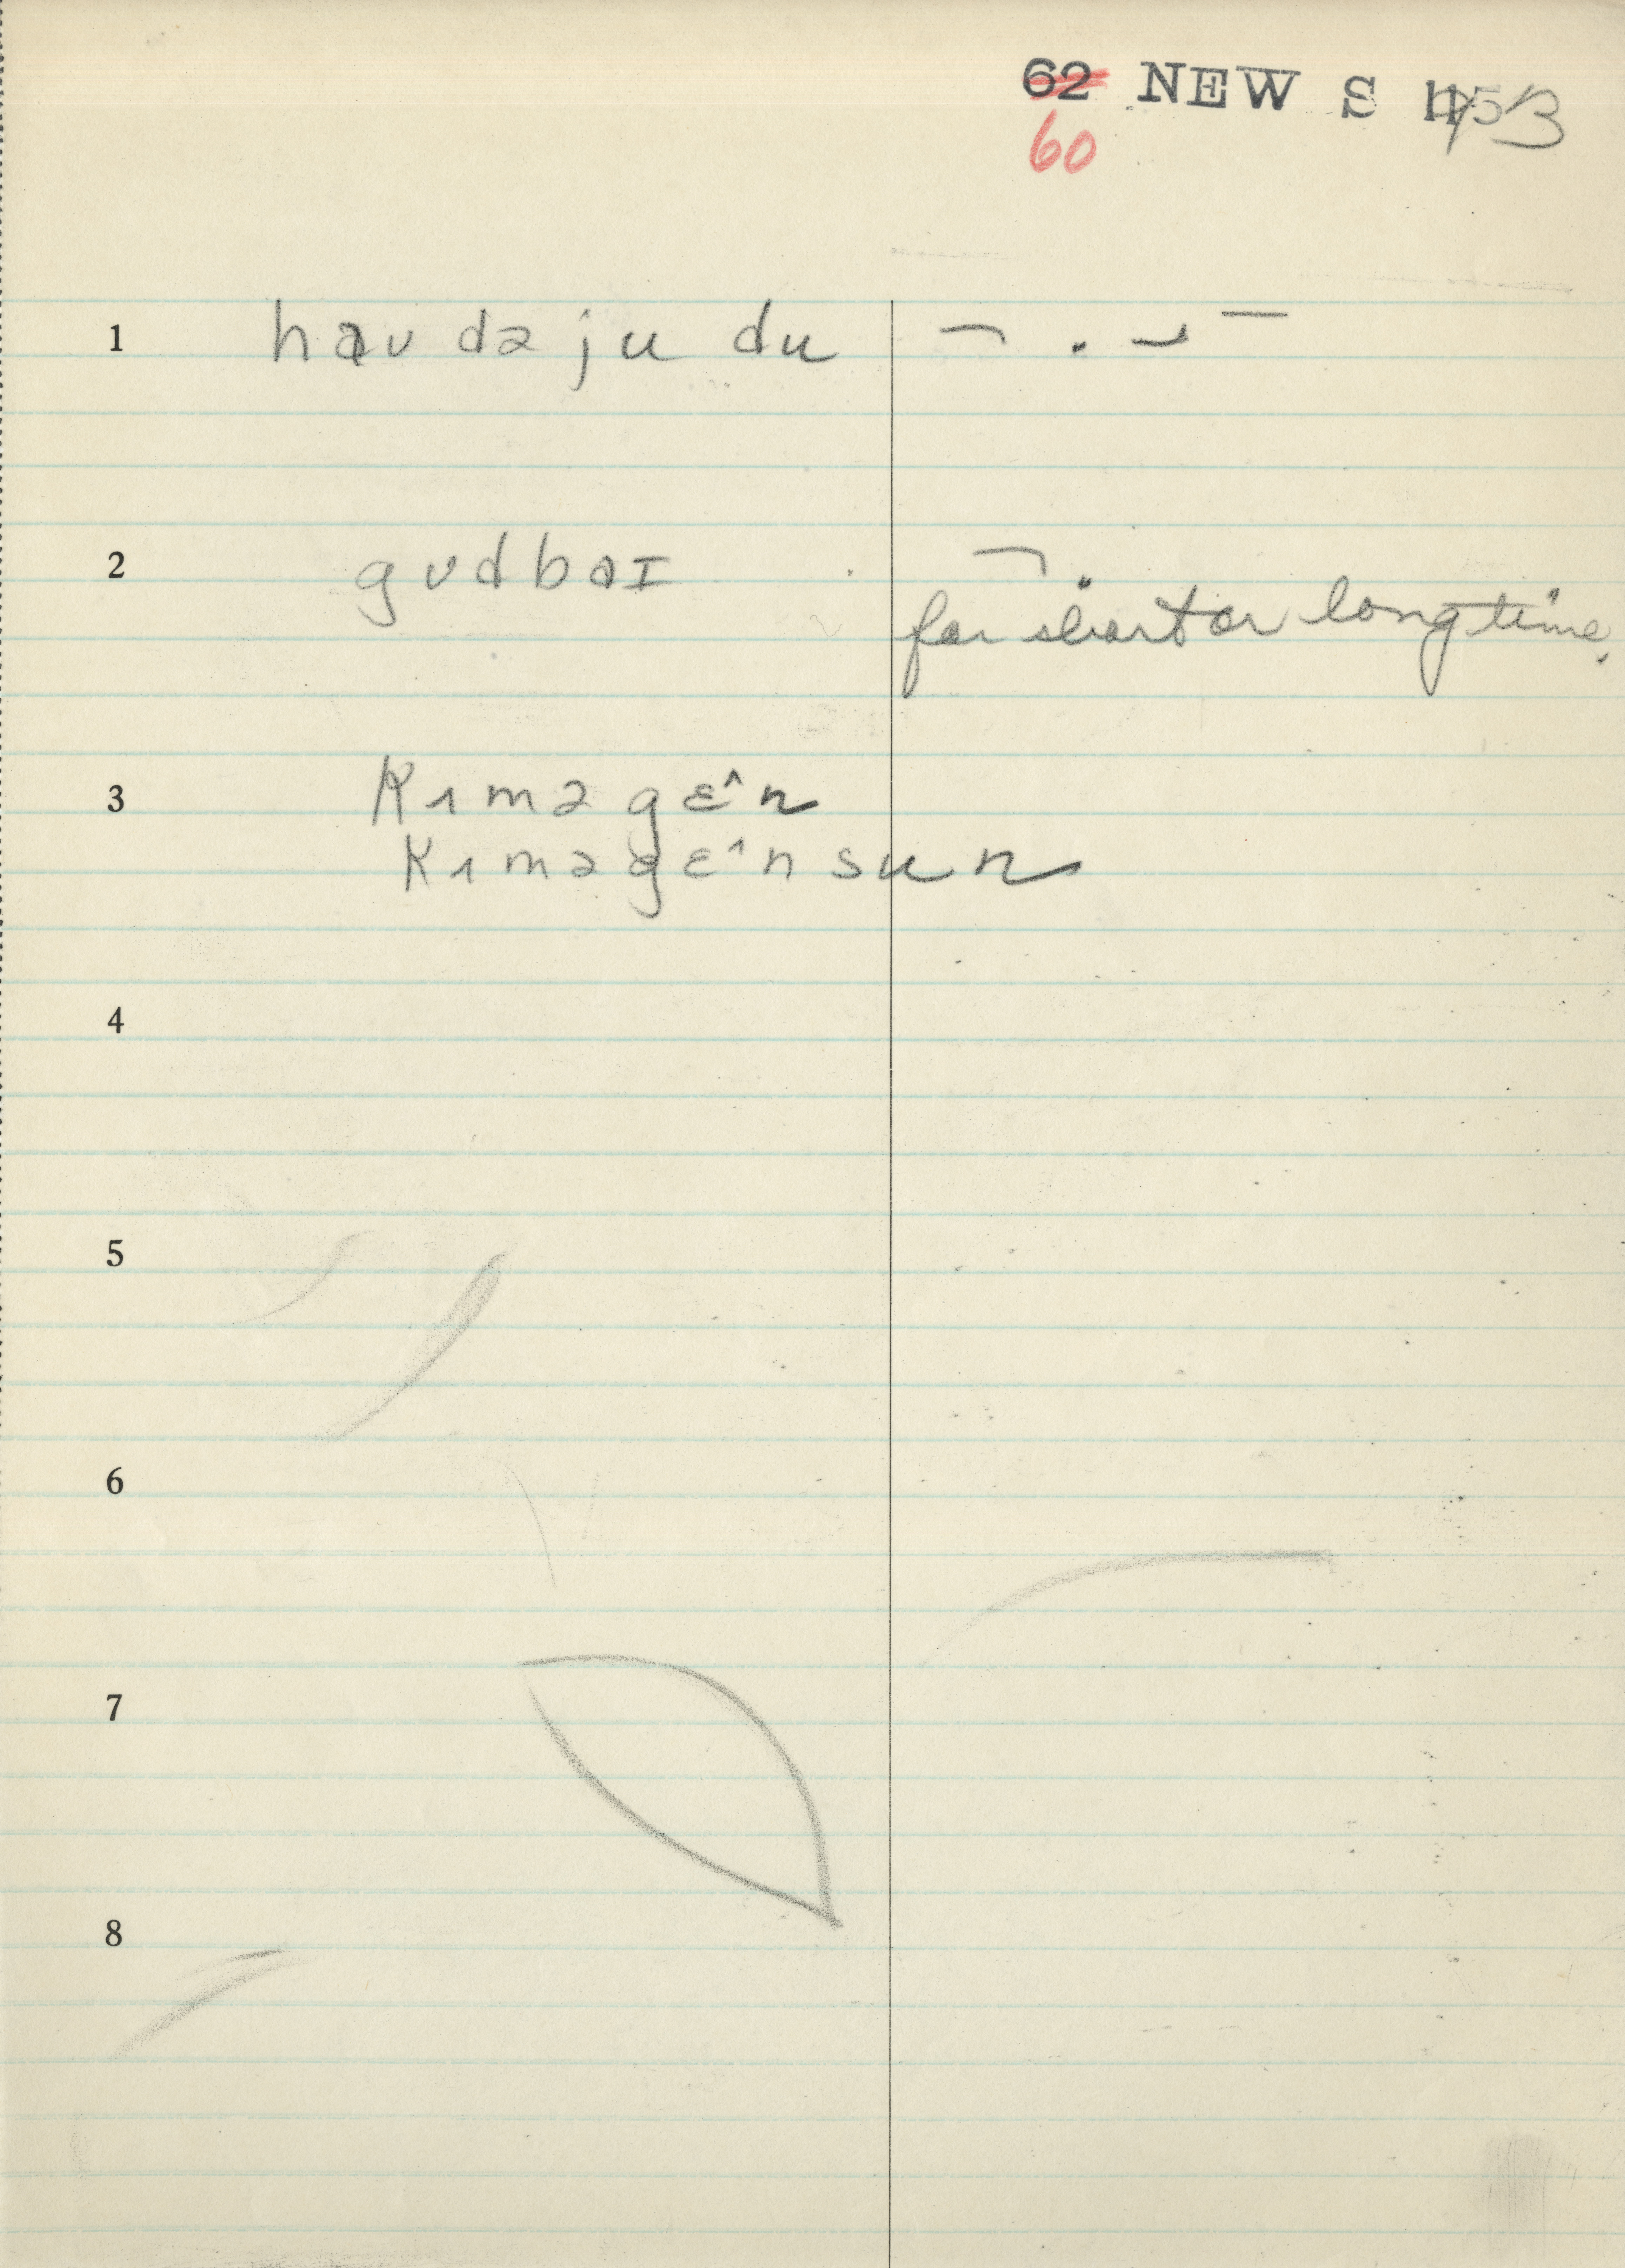 62 NEW S 1453
60
1 haʊ də ju du
2 gʊdbaɪ
for short or long time.
3 kɪməgɛ^n
kɪməgɛ^nsun
4
5
6
7
8